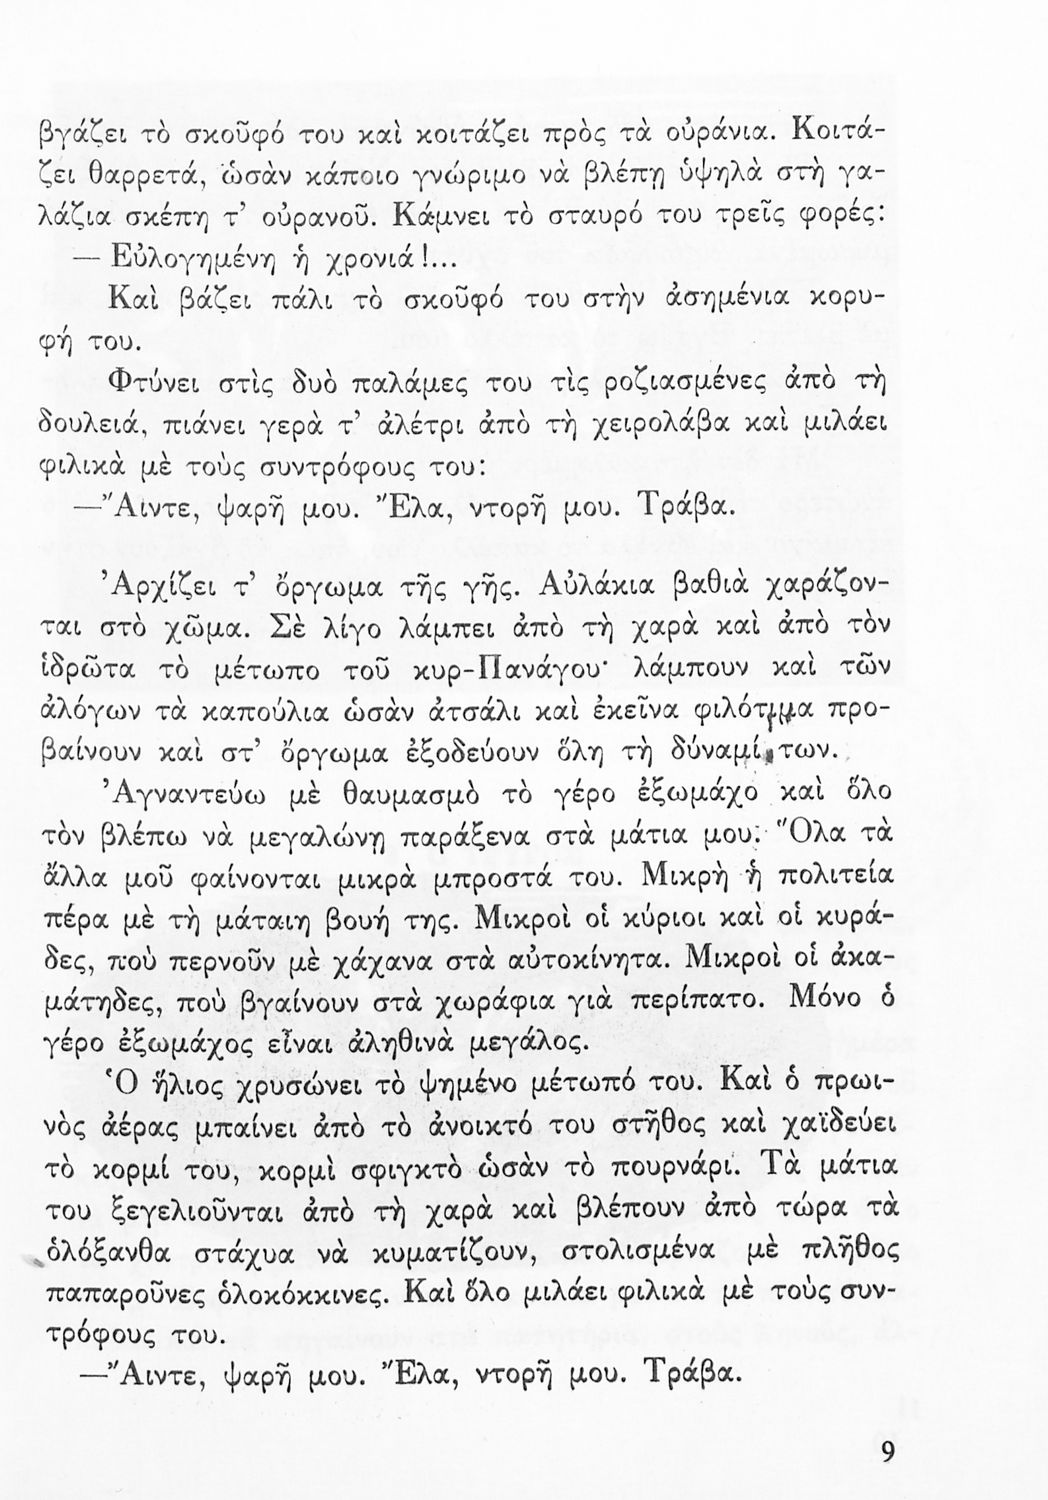 βγάζει τὸ σκοῦφό του καὶ κοιτάζει πρὸς τὰ οὐράνια. Κοιτά-
ζει θαρρετά, ὡσὰν κάποιο γνώριμο νὰ βλέπῃ ὑψηλὰ στὴ γα-
λάζια σκέπη τ’ οὐρανοῦ. Κάμνει τὸ σταυρό του τρεῖς φορές:
— Εὐλογημένη ἡ χρονιά!...
Καὶ βάζει πάλι τὸ σκοῦφό του στὴν ἀσημένια κορυ-
φή του.
Φτύνει στὶς δυὸ παλάμες του τὶς ροζιασμένες ἀπὸ τὴ
δουλειά, πιάνει γερὰ τ’ ἀλέτρι ἀπὸ τὴ χειρολάβα καὶ μιλάει
φιλικὰ μὲ τοὺς συντρόφους του:
—Ἄιντε, ψαρῆ μου. Ἔλα, ντορῆ μου. Τράβα.
Ἀρχίζει τ’ ὄργωμα τῆς γῆς. Αὐλάκια βαθιὰ χαράζον-
ται στὸ χῶμα. Σὲ λίγο λάμπει ἀπὸ τὴ χαρὰ καὶ ἀπὸ τὸν
ἱδρῶτα τὸ μέτωπο τοῦ κυρ-Πανάγου· λάμπουν καὶ τῶν
ἀλόγων τὰ καπούλια ὡσὰν ἀτσάλι καὶ ἐκεῖνα φιλότιμα προ-
βαίνουν καὶ στ’ ὄργωμα ἐξοδεύουν ὅλη τὴ δύναμί των.
Ἀγναντεύω μὲ θαυμασμὸ τὸ γέρο ἐξωμάχο καὶ ὅλο
τὸν βλέπω νὰ μεγαλώνῃ παράξενα στὰ μάτια μου. Ὅλα τὰ
ἄλλα μοῦ φαίνονται μικρὰ μπροστά του. Μικρὴ ἡ πολιτεία
πέρα μὲ τὴ μάταιη βουή της. Μικροὶ οἱ κύριοι καὶ οἱ κυρά-
δες, ποὺ περνοῦν μὲ χάχανα στὰ αὐτοκίνητα. Μικροὶ οἱ ἀκα-
μάτηδες, ποὺ βγαίνουν στὰ χωράφια γιὰ περίπατο. Μόνο ὁ
γέρο ἐξωμάχος εἶναι ἀληθινὰ μεγάλος.
Ὁ ἥλιος χρυσώνει τὸ ψημένο μέτωπό του. Καὶ ὁ πρωι-
νὸς ἀέρας μπαίνει ἀπὸ τὸ ἀνοικτό του στῆθος καὶ χαϊδεύει
τὸ κορμί του, κορμὶ σφιγκτὸ ὡσὰν τὸ πουρνάρι. Τὰ μάτια
του ξεγελιοῦνται ἀπὸ τὴ χαρὰ καὶ βλέπουν ἀπὸ τώρα τὰ
ὁλόξανθα στάχυα νὰ κυματίζουν, στολισμένα μὲ πλῆθος
παπαροῦνες ὁλοκόκκινες. Καὶ ὅλο μιλάει φιλικὰ μὲ τοὺς συν-
τρόφους του.
—Ἄιντε, ψαρῆ μου. Ἔλα, ντορῆ μου. Τράβα.
9